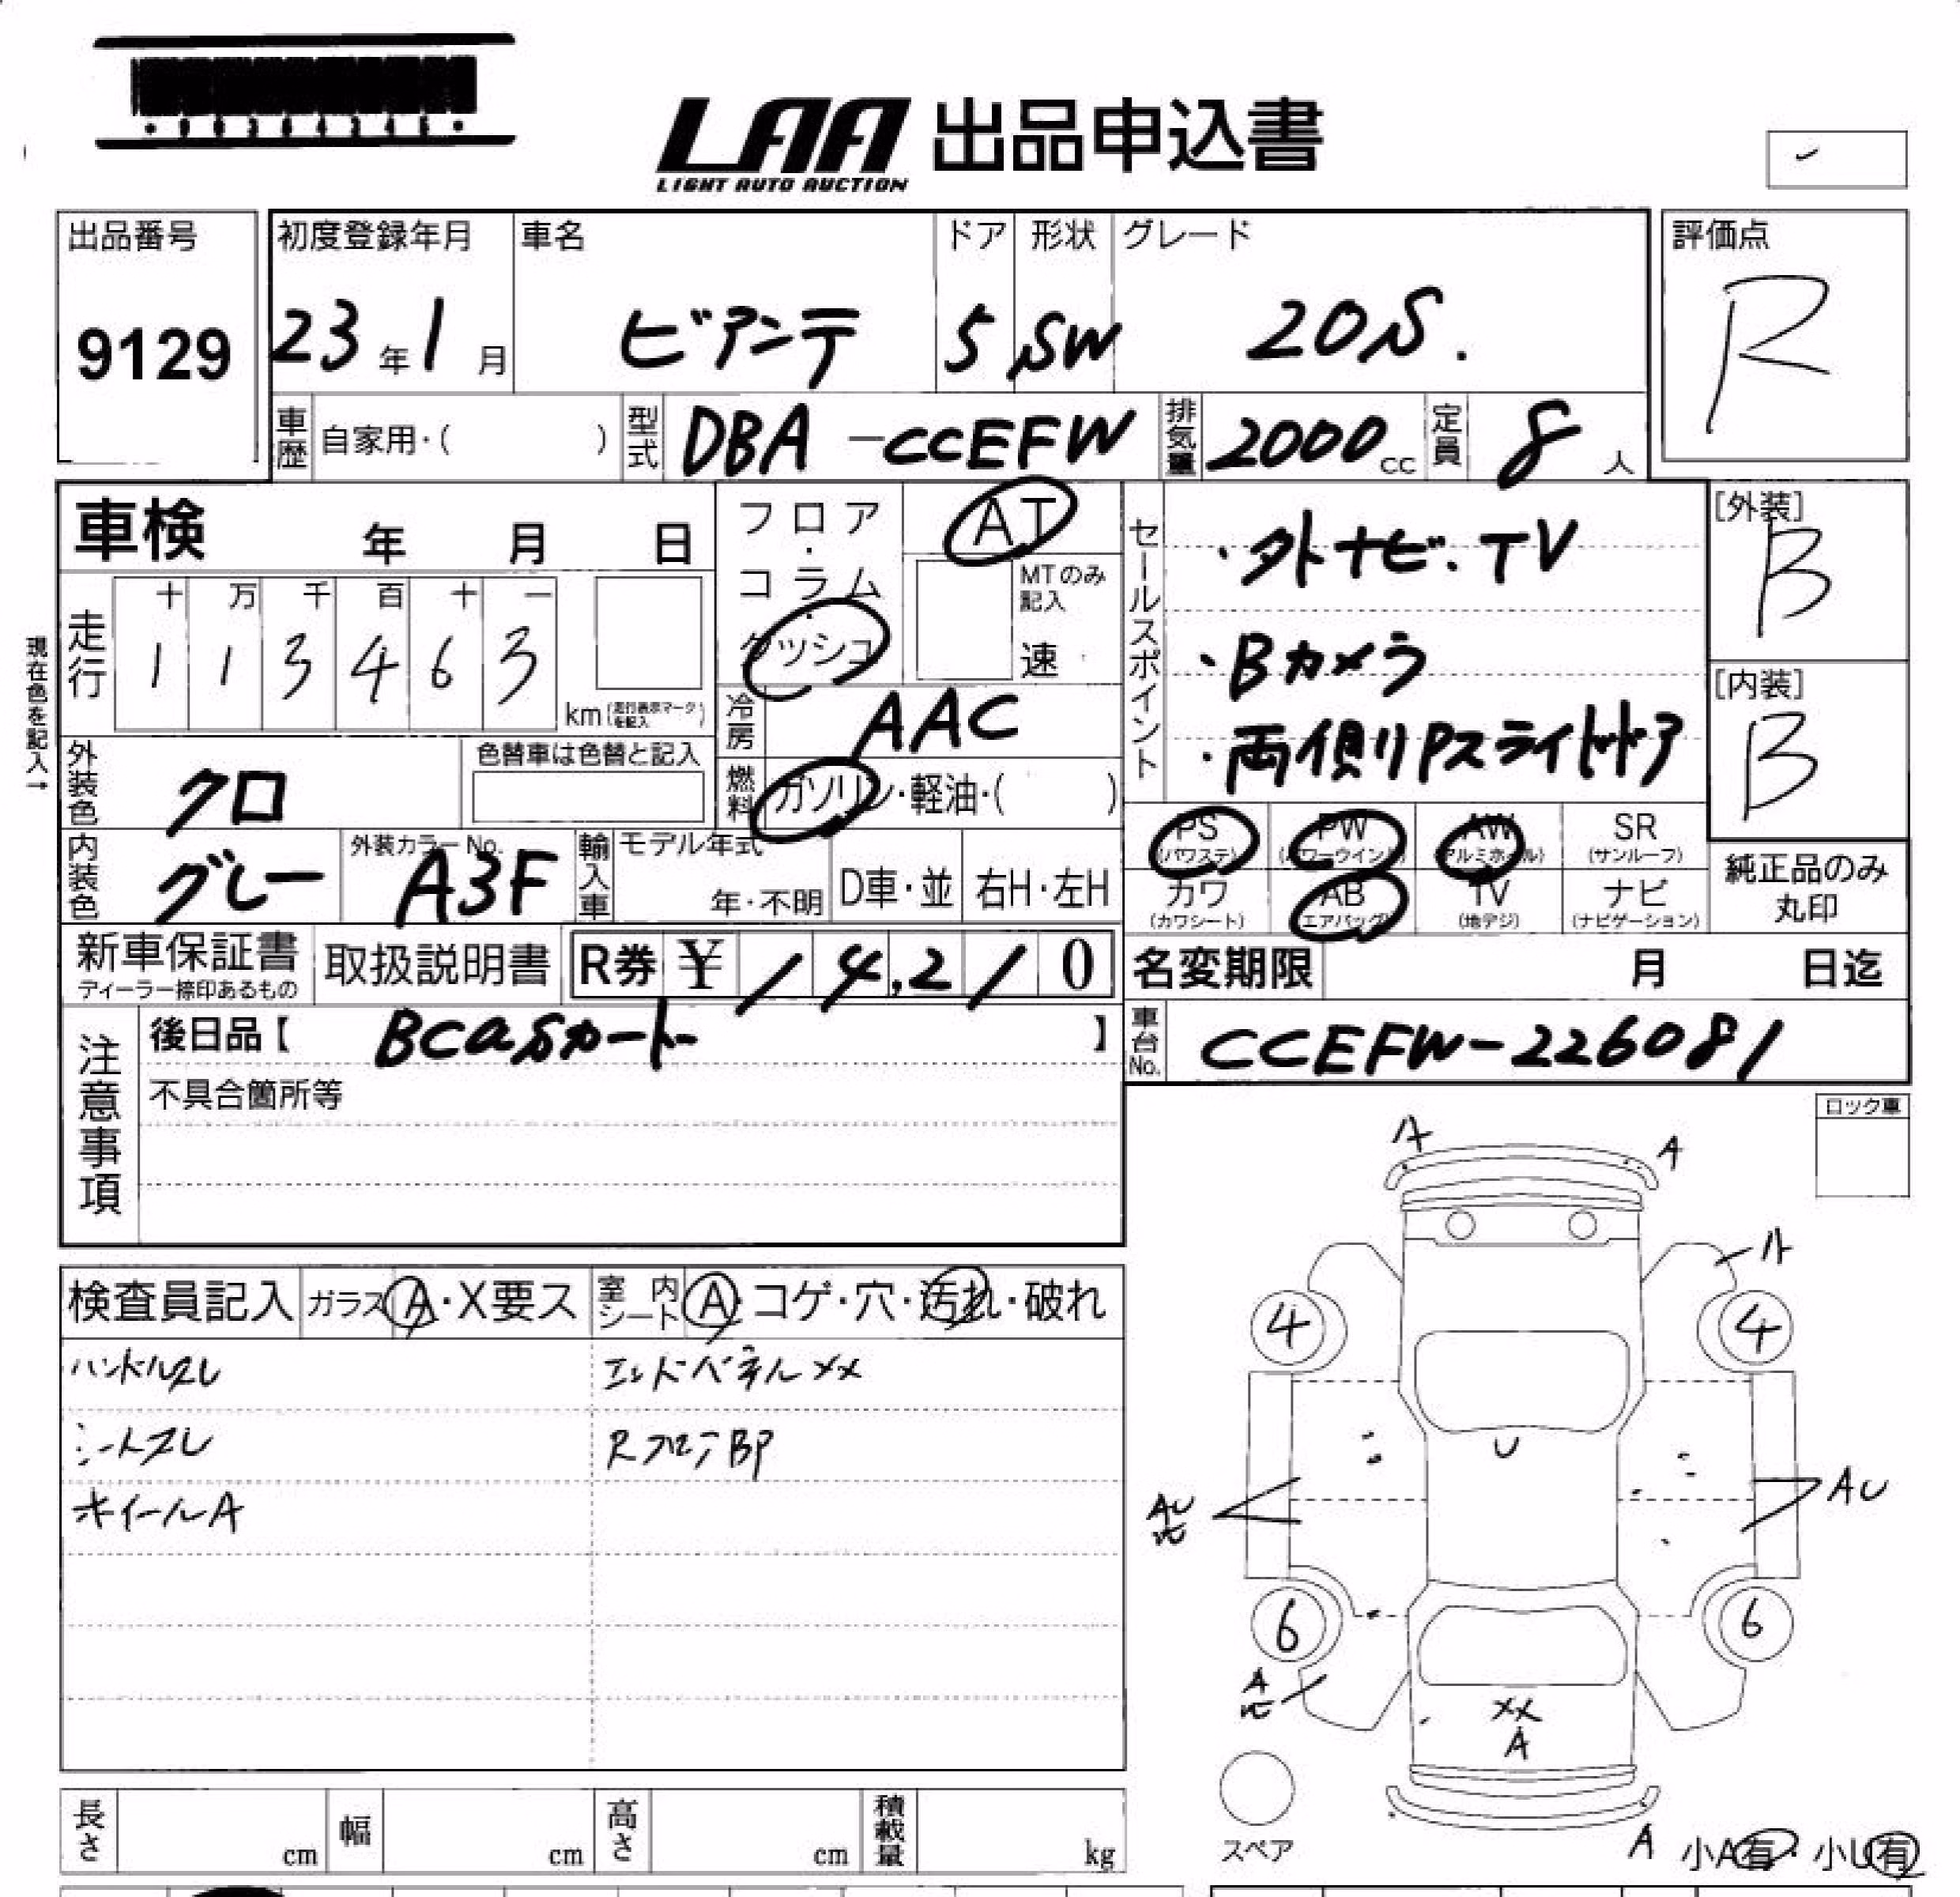 LAA 出品申込書
LIGHT AUTO AUCTION
出品番号
9129
初度登録年月
23年1月
車名
ビアンテ
ドア
5
形状
SW
グレード
20S.
評価点
R
車歴
自家用・( )
型式
DBA-CCEFW
排気量
2000cc
定員
8人
車検 年 月 日
フロア・コラム・ダッシュ
AT
MTのみ記入
速
セールスポイント
・外ナビ.TV
・Bカメラ
・両側Pスライドドア
[外装]
B
[内装]
B
現在色を記入→
走行
十 万 千 百 十 一
1 1 3 4 6 3
km(走行表示マークを記入)
冷房
AAC
外装色
クロ
色替車は色替と記入
燃料
ガソリン・軽油・( )
PS (パワステ)
PW (パワーウインド)
AW (アルミホイル)
SR (サンルーフ)
カワ (カワシート)
AB (エアバッグ)
TV (地デジ)
ナビ (ナビゲーション)
純正品のみ丸印
内装色
グレー
外装カラーNo.
A3F
輸入車
モデル年式
年・不明
D車・並
右H・左H
新車保証書
ディーラー捺印あるもの
取扱説明書
R券 ¥ 14,210
名変期限 月 日迄
注意事項
後日品【 BCasカード 】
車台No.
CCEFW-226081
不具合箇所等
ロック車
検査員記入
ガラス A・X要ス
室内シート A・コゲ・穴・汚れ・破れ
ハンドルスレ
エンドパネルXX
シートスレ
RフロアBP
ホイールA
A
A
A
4
4
U
AU
AU
6
6
A
XX
A
スペア
A
小A有・小U有
長さ cm
幅 cm
高さ cm
積載量 kg